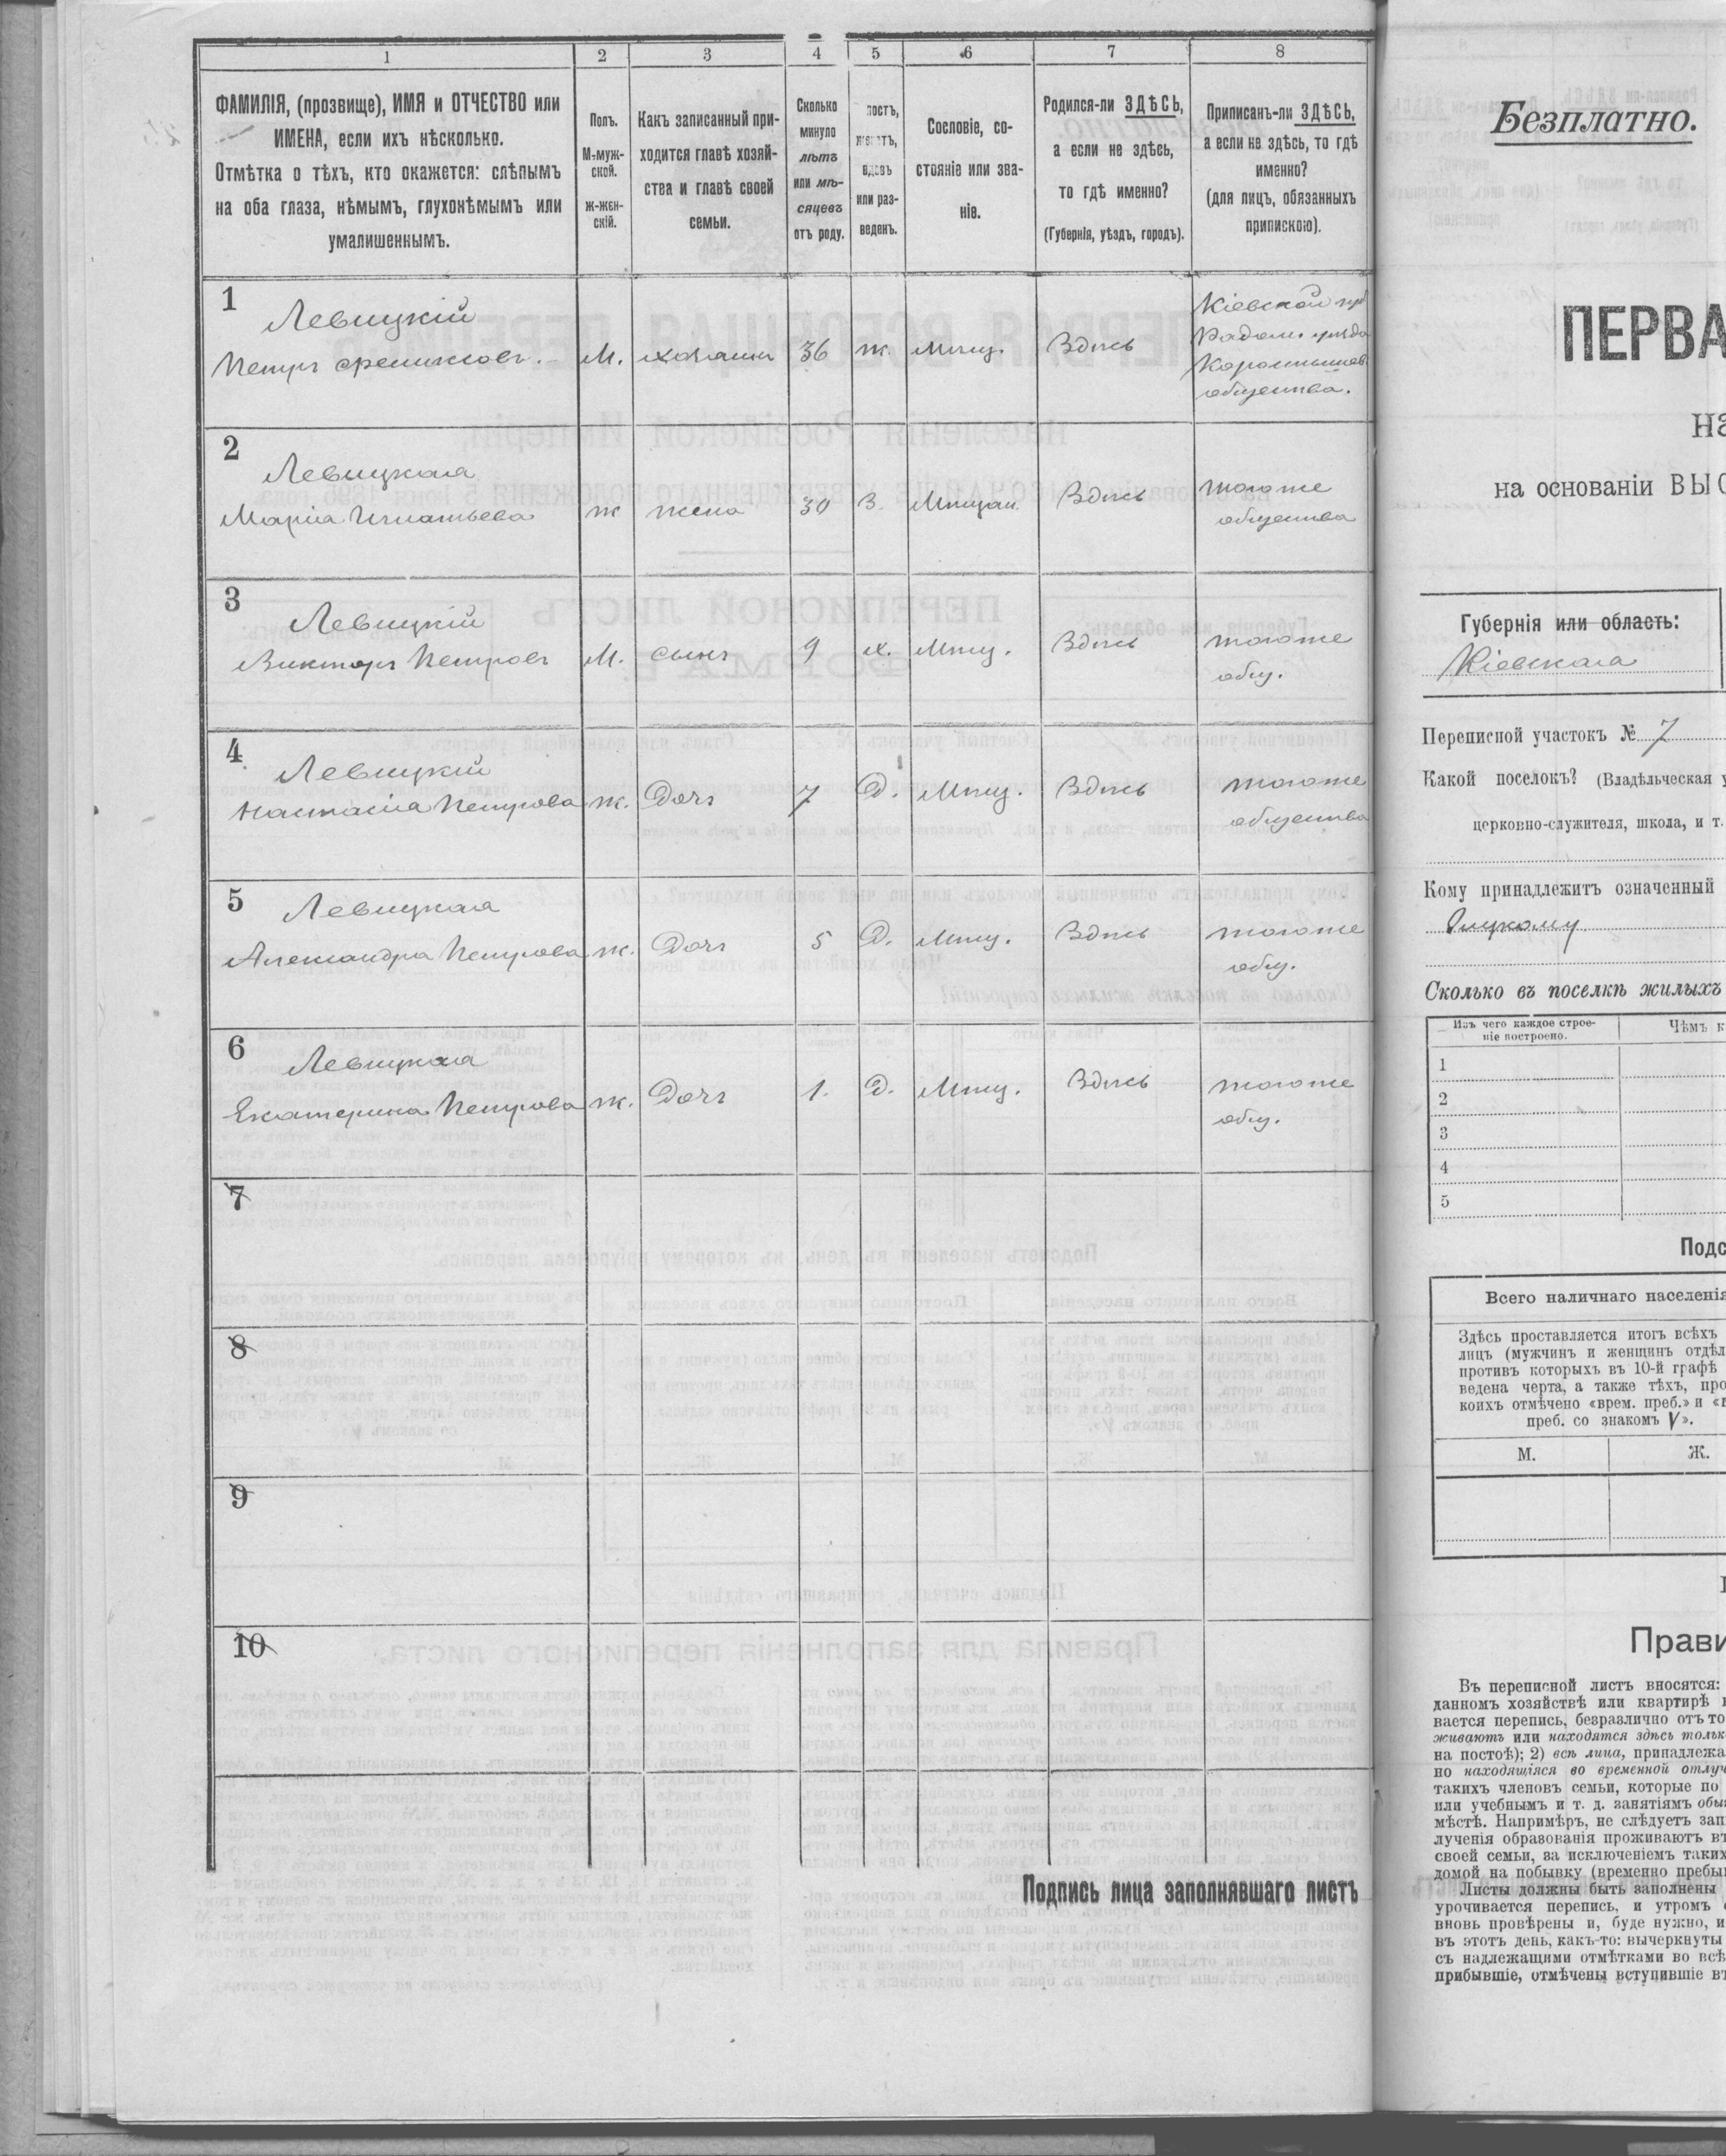 1 2 3 4 5 6 7 8
ФАМИЛІЯ, (прозвище), ИМЯ и ОТЧЕСТВО или
ИМЕНА, если ихъ нѣсколько.
Отмѣтка о тѣхъ, кто окажется: слѣпымъ
на оба глаза, нѣмымъ, глухонѣмымъ или
умалишеннымъ.
Полъ.
М-муж-
ской.
ж-жен-
скій.
Какъ записанный при-
ходится главѣ хозяй-
ства и главѣ своей
семьи.
Сколько
минуло
лѣтъ
или мѣ-
сяцевъ
отъ роду.
или раз-
веденъ.
Сословіе, со-
стояніе или зва-
ніе.
Родился-ли ЗДѢСЬ,
а если не здѣсь,
то гдѣ именно?
(Губернія, уѣздъ, городъ).
Приписанъ-ли ЗДѢСЬ,
а если не здѣсь, то гдѣ
именно?
(для лицъ, обязанныхъ
припискою).
1
Левицкій
Петръ
М.
36
Мѣщ.
Здѣсь
Кіевской губ
Радом. уѣзда
общества.
2
Левицкая
Марія Игнатьева
ж
жена
30
З.
Мѣщан.
Здѣсь
тогоже
общества
3
Левицкій
Викторъ Петровъ
М.
сынъ
9
х.
Мѣщ.
Здѣсь
тогоже
общ.
4
Левицкій
Настасія Петрова
ж.
Дочь
7
Д.
Мѣщ.
Здѣсь
тогоже
общества
5
Левицкая
Александра Петрова
ж.
Дочь
5
Д.
Мѣщ.
Здѣсь
тогоже
общ.
6
Левицкая
Екатерина Петрова
ж.
Дочь
1.
Д.
Мѣщ.
Здѣсь
тогоже
общ.
7
8
9
10
Подпись лица заполнявшаго листъ
Безплатно.
ПЕРВА
на
на основаніи ВЫС
Губернія или область:
Кіевская
Переписной участокъ № 7
Какой поселокъ? (Владѣльческая у
церковно-служителя, школа, и т.
Кому принадлежитъ означенный
Сколько въ поселкѣ жилыхъ
Изъ чего каждое строе-
ніе построено.
Чѣмъ к
1
2
3
4
5
Подс
Всего наличнаго населенія
Здѣсь проставляется итогъ всѣхъ
лицъ (мужчинъ и женщинъ отдѣл
противъ которыхъ въ 10-й графѣ
ведена черта, а также тѣхъ, про
коихъ отмѣчено «врем. преб.» и «
преб. со знакомъ V».
М. Ж.
Прави
Въ переписной листъ вносятся:
данномъ хозяйствѣ или квартирѣ
вается перепись, безразлично отъ то
живаютъ или находятся здѣсь тольк
на постоѣ); 2) всѣ лица, принадлежа
но находящіяся во временной отлуч
такихъ членовъ семьи, которые по
или учебнымъ и т. д. занятіямъ обы
мѣстѣ. Напримѣръ, не слѣдуетъ зап
лученія образованія проживаютъ въ
своей семьи, за исключеніемъ таких
домой на побывку (временно пребы
Листы должны быть заполнены
урочивается перепись, и утромъ
вновь провѣрены и, буде нужно, и
въ этотъ день, какъ-то: вычеркнуты
съ надлежащими отмѣтками во всѣ
прибывшіе, отмѣчены вступившіе въ